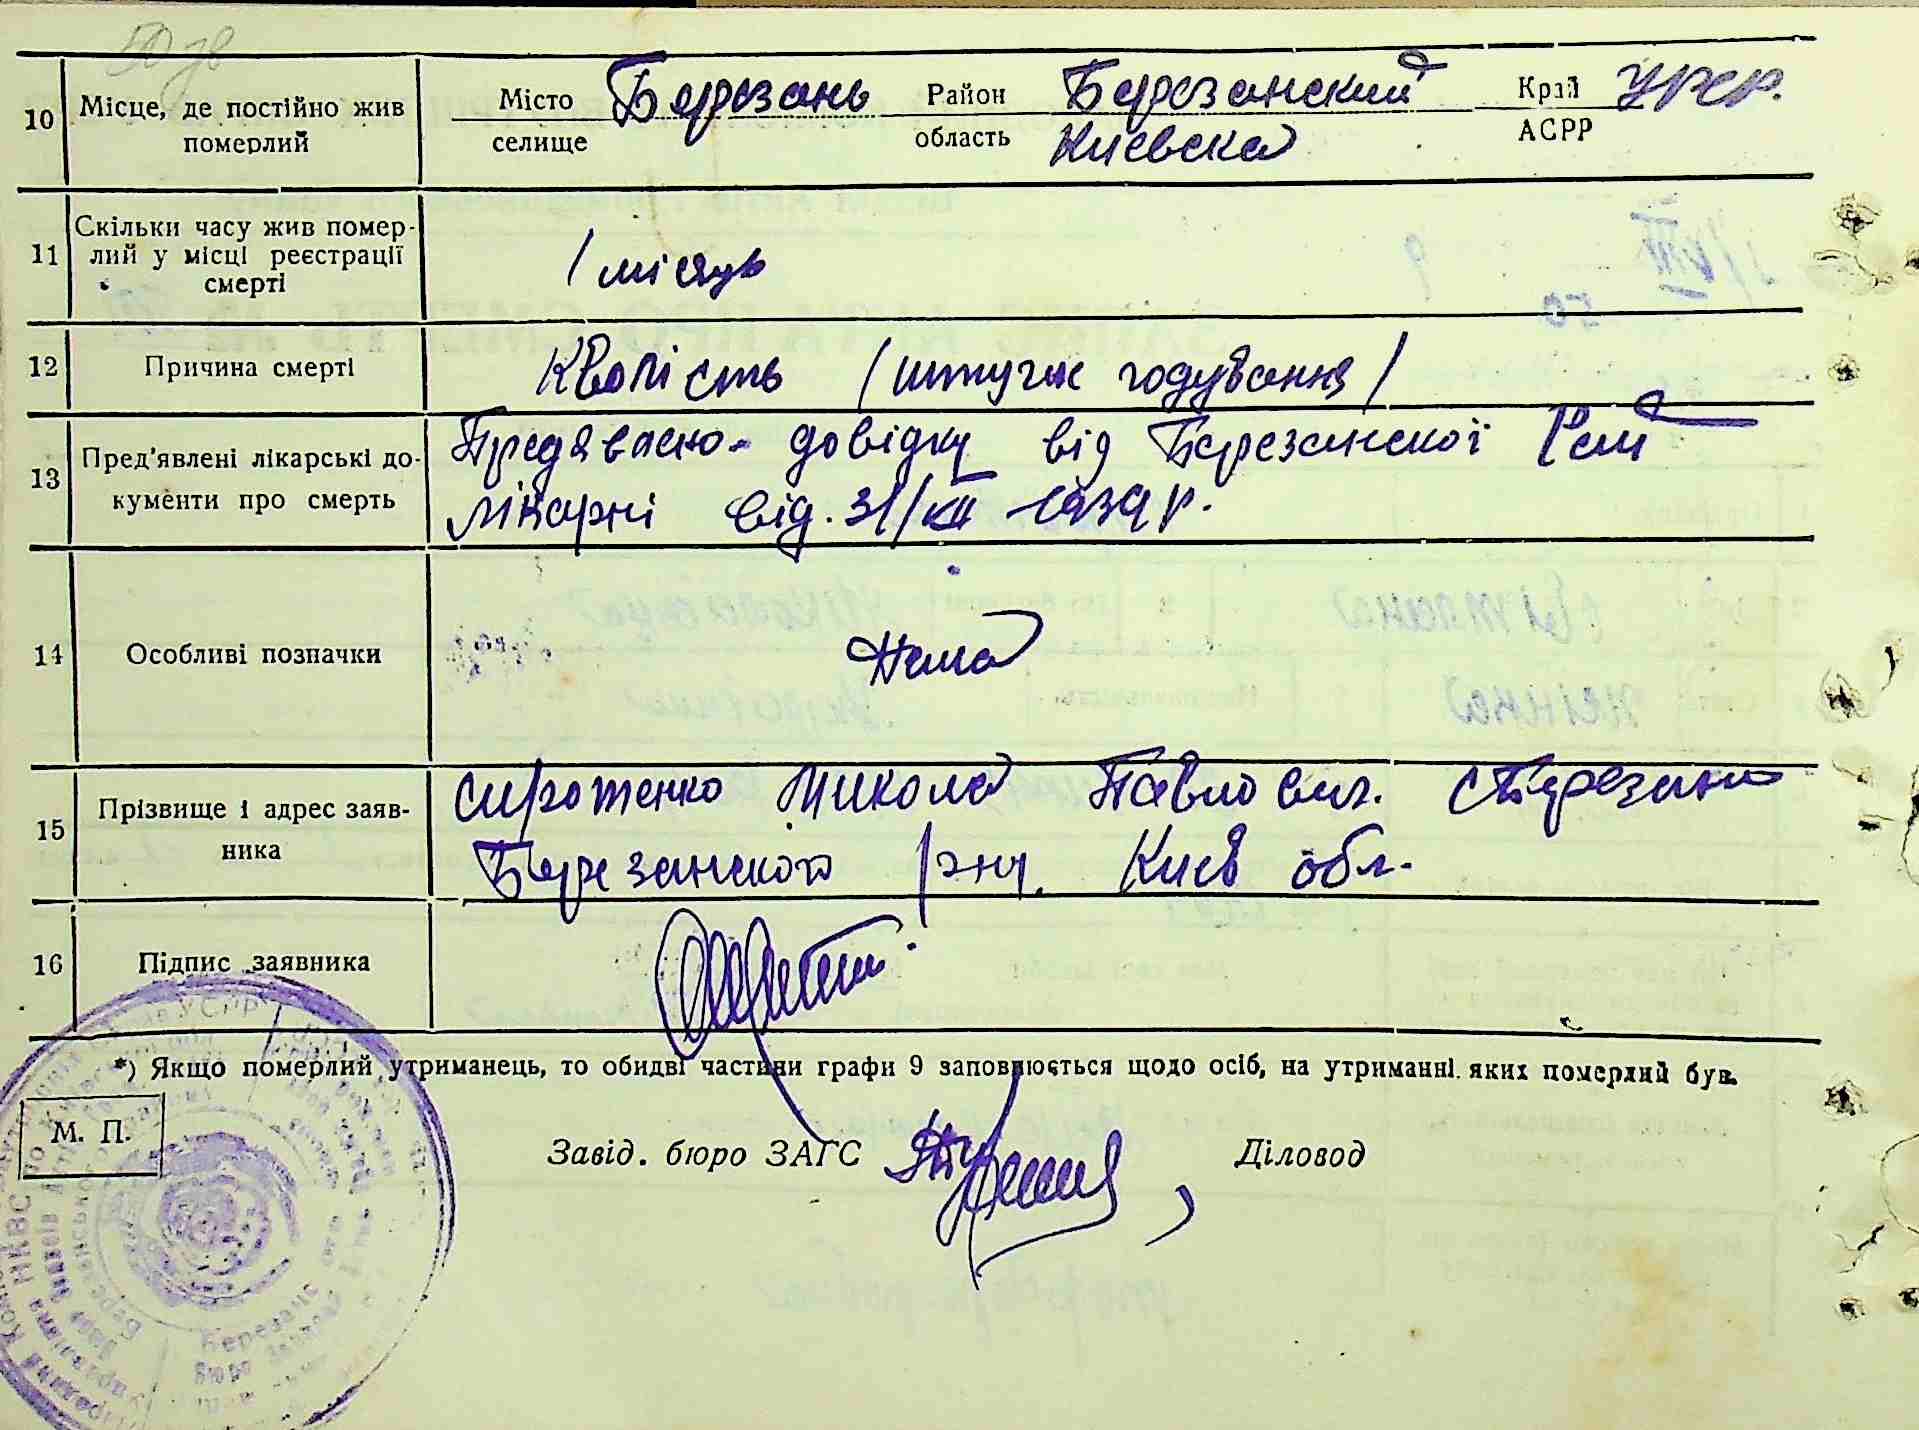 50 зв
10 Місце, де постійно жив померлий
Місто Березань Район Березанский Край УРСР.
селище область Киевска АСРР
11 Скільки часу жив помер-
лий у місці реєстрації
смерті
1 місяць
12 Причина смерті
Кволість /штучне годування/
13 Пред'явлені лікарські до-
кументи про смерть
довідку від Березанскої
лікарні від. 31/XII 1939 р.
14 Особливі позначки
Нема
15 Прізвище і адрес заяв-
ника
Сиротенко Микола Павлович. с Березань
Березанского р-ну. Киев обл.
16 Підпис заявника
*) Якщо померлий утриманець, то обидві частини графи 9 заповнюється щодо осіб, на утриманні яких померлий був.
М. П.
Завід. бюро ЗАГС Діловод